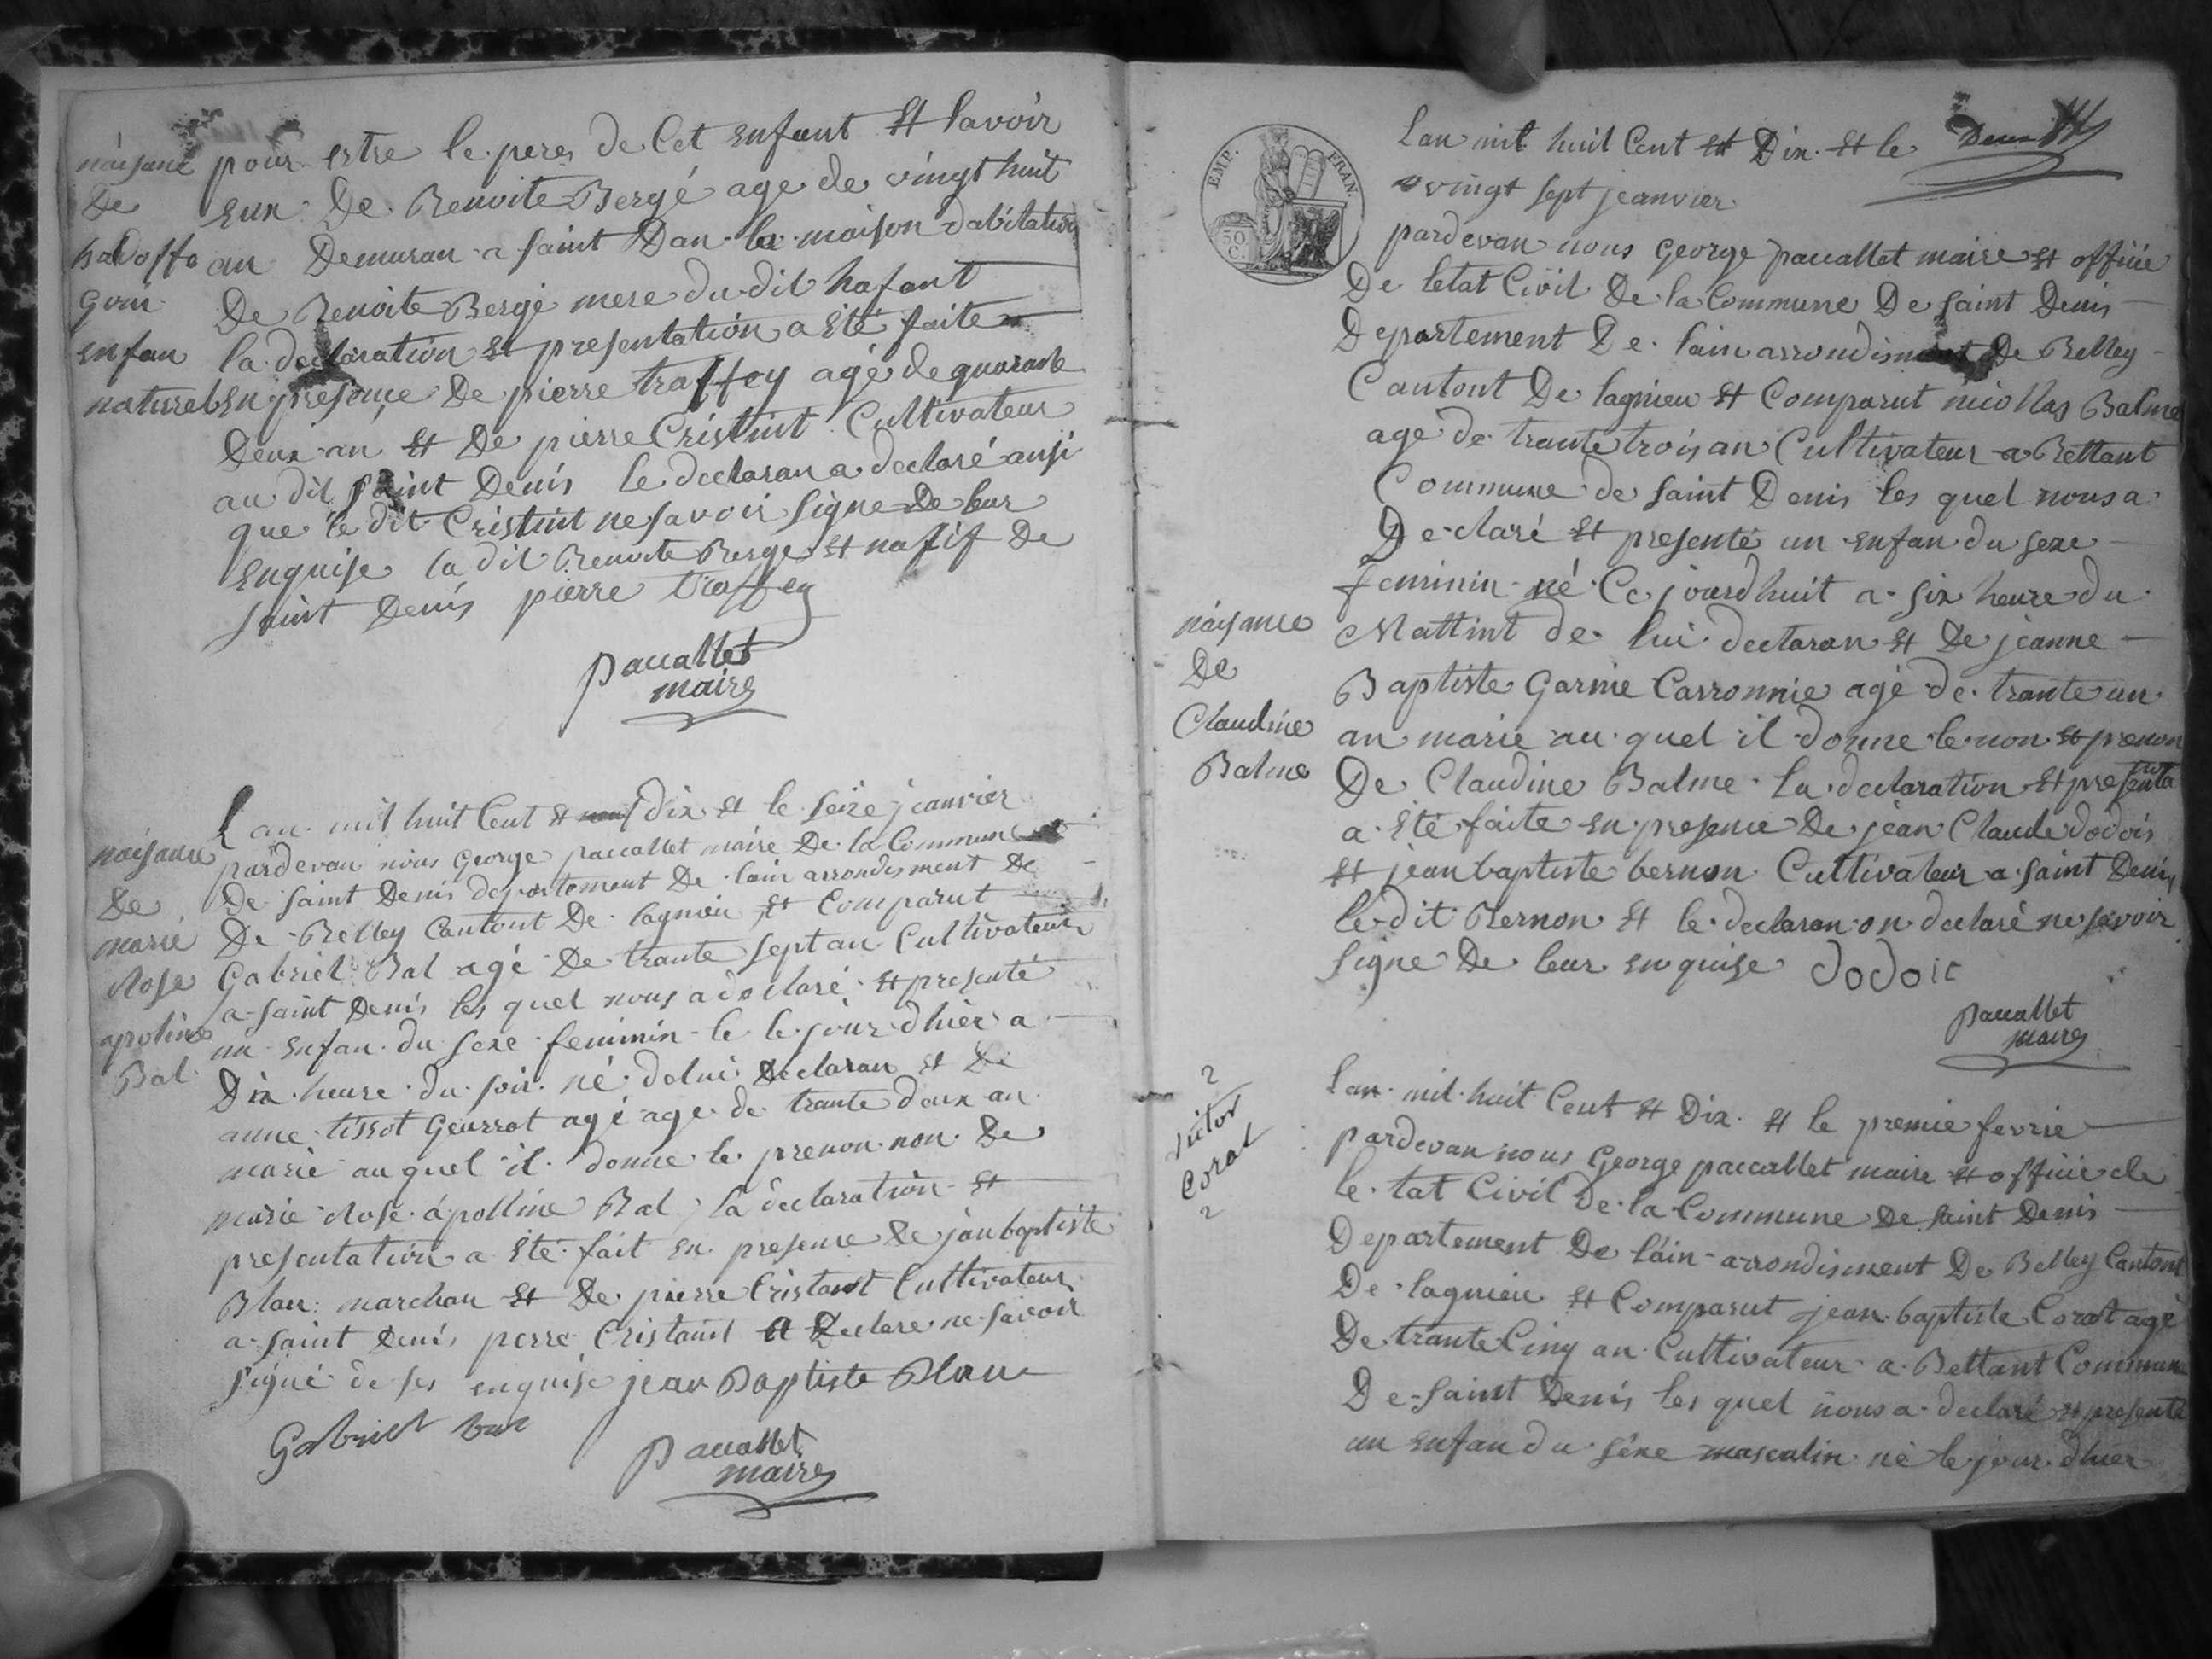 naisance
De
hadoffe
Goin
enfan
naturel
pour estre le peres de Cet enfant Et savoir
eux De Benoite Bergé age de vingt huit
an Demuran a saint Dan la maison dabitation
De Benoite Bergé mere du dit hafant
la declaration Et presentation a Eté faite
En presence De pierre traffey agé de quarante
Deux an Et De pierre Cristint Cultivateur
au dit saint Denis le declaran a declaré ansi
que le dit Cristint ne savoir signe De leur
Enquise la dit Benoite Berge Et natif De
saint Denis pierre traffey
paccallet
maire
naisance
De
marie
Rose
apoline
Bal
Lan mil huit Cent Et Dix Et le seize jeanvier
pardevan nous George paccallet maire De la Commune
De saint Denis departement De lain arrondisment De
De Belley Cantont De lagnieu Et Comparut
Gabriel Bal agé De trante sept an Cultivateur
a saint Denis les quel nous a declaré Et presenté
un enfan du sexe feminin le le jour dhier a
Dix heure du soir né de lui Declaran Et De
anne tissot Geurrat agé age de trante deux an
marie au quel il donne le prenon non De
marie Rose apolline Bal la declaration Et
presentation a Eté fait en presence De jan baptiste
Blan marchan Et De pierre Cristant Cultivateur
a saint Denis pierre Cristant a Declare ne savoir
signé de ses enquise jean Baptiste Blanc
Gabriel bal
paccallet
maire
EMP. FRAN.
50
C.
Deux
Lan mil huit Cent Et Dix Et le
vingt sept jeanvier
pardevan nous George paccallet maire Et officie
De letat Civil De la Commune De saint Denis
Departement De lain arrondisment De Belley
Cantont De lagnieu Et Comparut nicollas Balme
age de trante trois an Cultivateur a Bettant
Commune de saint Denis les quel nous a
Declaré Et presenté un enfan du sexe
feminin né Ce jourdhuit a six heure du
Mattint de lui declaran Et De jeanne
Baptiste Garnie Carronnie agé de trante un
an marie au quel il donne le non Et prenon
De Claudine Balme la declaration Et presenta
a Eté faite en presence De jean Claude dodois
Et jean baptiste bernon Cultivateur a saint Denis
le dit Bernon Et le declaran on declaré ne savoir
signe De leur enquise dodoit
paccallet
maire
naisance
De
Claudine
Balme
2
Victor
Corat
2
Lan mil huit Cent Et Dix Et le premie fevrie
pardevan nous George paccallet maire Et officie de
le tat Civil De la Commune De saint Denis
Departement De lain arrondisment De Belley Cantont
De lagnieu Et Comparut jean baptiste Corat agé
De trante Cinq an Cultivateur a Bettant Commune
De saint Denis les quel nous a declaré Et presenté
un enfan du sexe masculin né le jour dhier